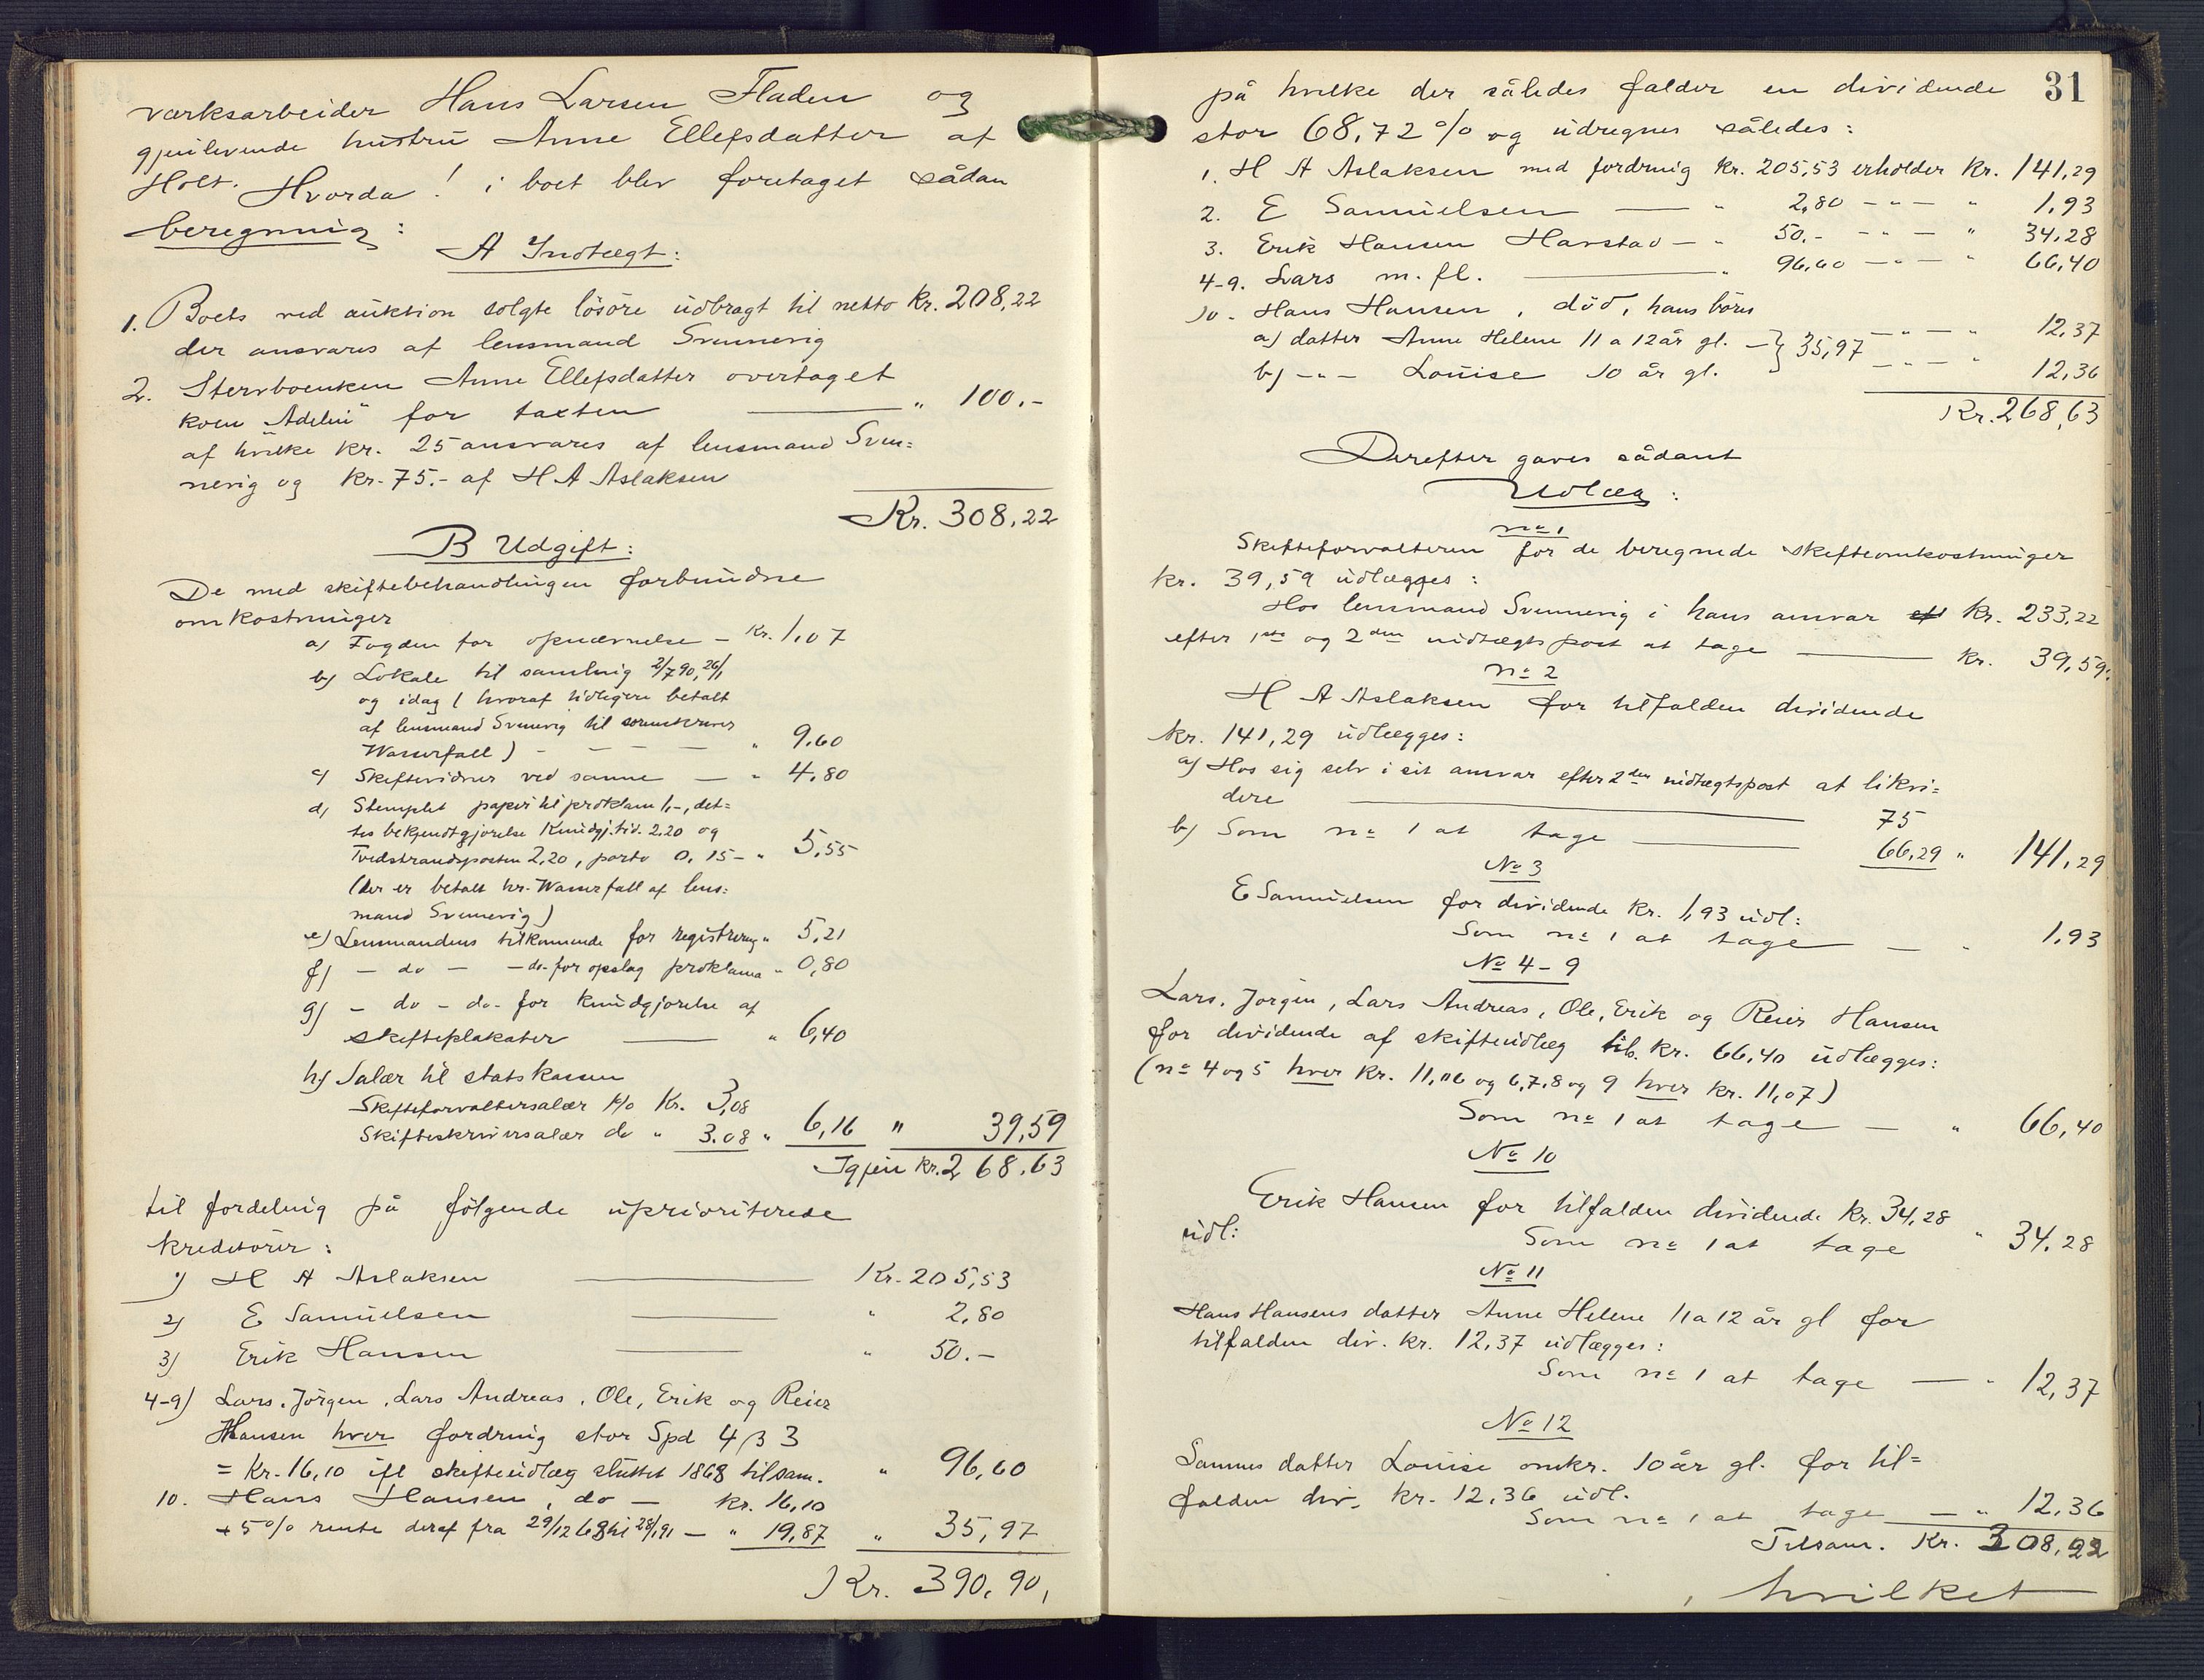 værksarbeider Hans Larsen Fladen og
gjenlevende hustru Anne Ellefsdatter af
Holt. Hvorda! i boet blev foretaget sådan
beregning:
A Indtægt:
1. Boets ved auktion solgte lösöre udbragt til netto kr. 208,22
der ansvares af lensmand Svennevig
2. Stervboenken Anne Ellefsdatter overtaget
koen "Adelin" for taxten — " 100.-
af hvilke kr. 25 ansvares af lensmand Sven=
nevig og kr. 75.- af H A Aslaksen
Kr. 308,22
B Udgift:
De med skiftebehandlingen forbundne
omkostninger
a) Fogden for opnævnelse – Kr. 1,07
b) Lokale til samling 2/7 90, 26/1
og idag (hvoraf tidligere betalt
af lensmand Svennevig til sorenskriver
Wasserfall) - — — — " 9.60
c) Skiftevidner ved samme — " 4,80
d) Stemplet papir til proklam 1,-, det=
tes bekjendtgjørelse Kundgj.tid. 2.20 og
Tvedstrandsposten 2,20, porto 0,15 – " 5,55
(der er betalt hr. Wasserfall af lens=
mand Svennevig)
e) Lensmandens tilkommende for registrering " 5,21
f) – do – – do. for opslag proklama " 0,80
g) – do – do. for kundgjørelse af
skifteplakater — " 6,40
h) Salær til statskassen
Skifteforvaltersalær 1% Kr. 3,08
Skifteskriversalær do " 3.08 " 6,16 " 39,59
Igjen kr. 268,63
til fordeling på følgende uprioriterede
kreditorer:
1) H A Aslaksen — Kr. 205,53
2) E Samuelsen — " 2,80
3) Erik Hansen — " 50.–
4-9) Lars, Jørgen, Lars Andreas, Ole, Erik og Reier
Hansen hver fordring stor Spd 4 ß 3
= Kr. 16,10 ifl skifteudlæg sluttet 1868 tilsam. " 96,60
10. Hans Hansen, do — kr. 16,10
+ 5% rente deraf fra 29/12 68 til 28/1 91 — " 19,87 " 35,97
Kr. 390,90,
31
på hvilke der således falder en dividende
stor 68,72% og udregnes således:
1. H A Aslaksen med fordring kr. 205,53 erholder kr. 141,29
2. E Samuelsen — " 2,80 – " – " 1,93
3. Erik Hansen Harstad – " 50.- – " – " 34,28
4-9. Lars m. fl. — " 96,60 – " – " 66,40
10. Hans Hansen, död, hans börn
a) datter Anne Helene 11 a 12 år gl. –} 35,97 – " – " 12,37
b) – " – Louise 10 år gl. – " – " 12,36
Kr. 268,63
Derefter gaves sådant
Udlæg:
no 1
Skifteforvalteren for de beregnede skifteomkostninger
kr. 39,59 udlægges:
Hos lensmand Svennevig i hans ansvar kr. 233,22
efter 1ste og 2den indtægtspost at tage — kr. 39,59.
no 2
H A Aslaksen for tilfalden dividende
kr. 141,29 udlægges:
a) Hos sig selv i sit ansvar efter 2den indtægtspost at likvi=
dere — 75
b) Som no 1 at tage — 66,29 " 141,29
No 3
E Samuelsen for dividende kr. 1,93 udl:
Som no 1 at tage — " 1,93
No 4 – 9
Lars, Jørgen, Lars Andreas, Ole, Erik og Reier Hansen
for dividende af skifteudlæg tils. kr. 66,40 udlægges:
(no 4 og 5 hver kr. 11,06 og 6, 7, 8 og 9 hver kr. 11,07)
Som no 1 at tage — " 66,40
No 10
Erik Hansen for tilfalden dividende kr. 34,28
udl: Som no 1 at tage " 34,28
No 11
Hans Hansens datter Anne Helene 11 a 12 år gl for
tilfalden div. kr. 12,37 udlægges:
Som no 1 at tage — " 12,37
No 12
Sammes datter Louise omkr. 10 år gl. for til=
falden div. kr. 12,36 udl.
Som no 1 at tage — " 12,36
Tilsam. Kr. 308,22
hvilket